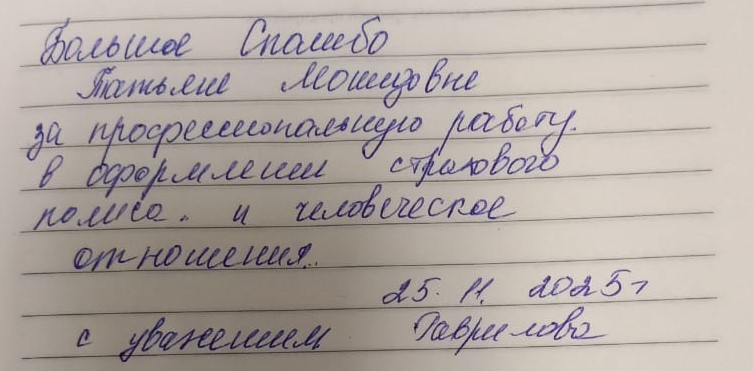 Большое Спасибо
Татьяне
за профессиональную работу.
в оформлении страхового
полиса. и человеческое
отношения..
25. 11. 2025г
с уважением Гаврилова